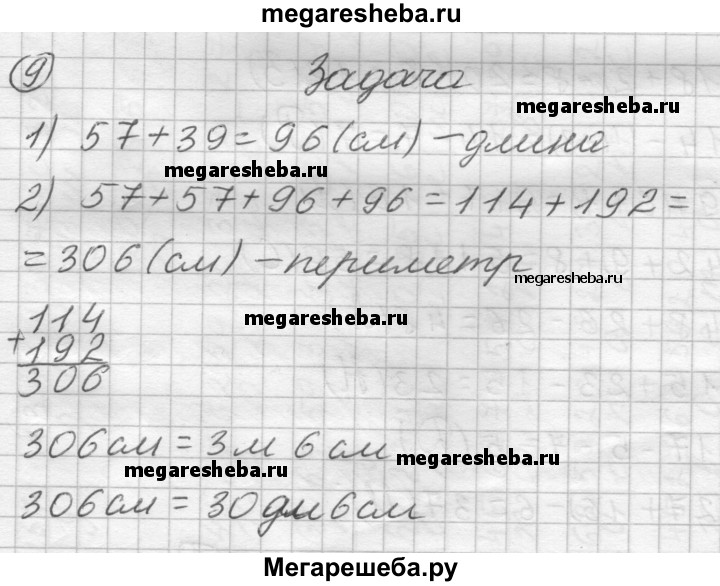 megaresheba.ru
9 Задача
megaresheba.ru
1) 57+39=96(см) – длина
megaresheba.ru
2) 57+57+96+96=114+192=
=306(см) – периметр
megaresheba.ru
114
megaresheba.ru
+192
306
306см = 3м 6см
megaresheba.ru
megaresheba.ru
306см = 30дм 6см
Мегарешеба.ру